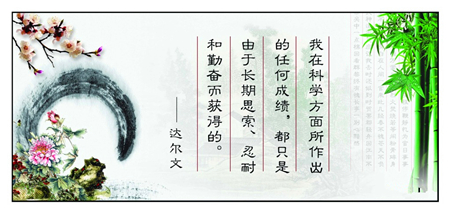 我在科学方面所作出
的任何成绩，都只是
由于长期思索、忍耐
和勤奋而获得的。
——达尔文